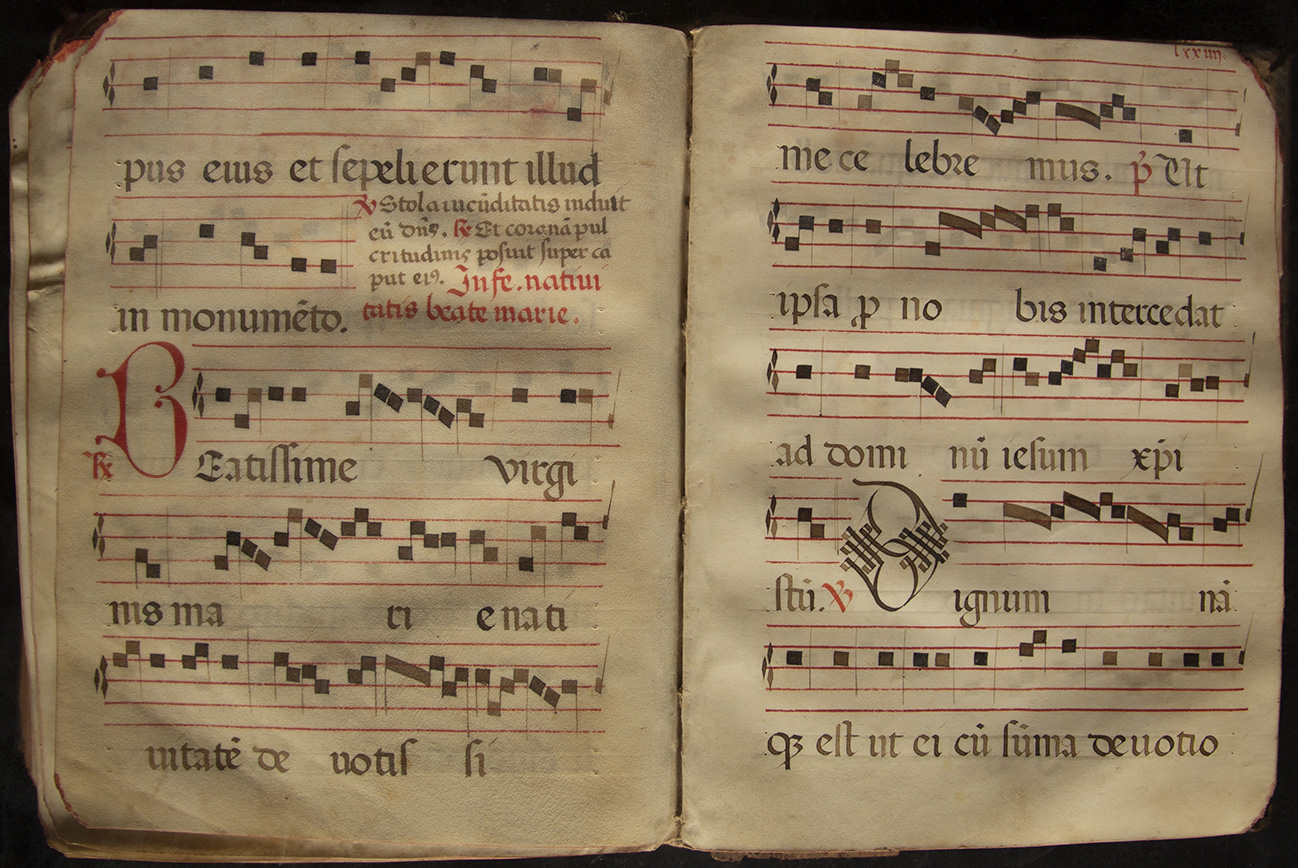 pus eius et sepelierunt illud
℣ Stola iucūditatis induit
eū dn̄s. ℟ Et coronā pul
critudinis posuit super ca
put ei9. In fe. natiui
in monumēto. tatis beate marie.
℟ BEatissime virgi
nis ma ri e nati
uitatē de uotis si
lxxiiij.
me ce lebre mus. p̄ Ut
ipsa p no bis intercedat
ad domi nū iesum xp̄i
stū. ℣ Dignum nā
qȝ est ut ei cū sūma deuotio